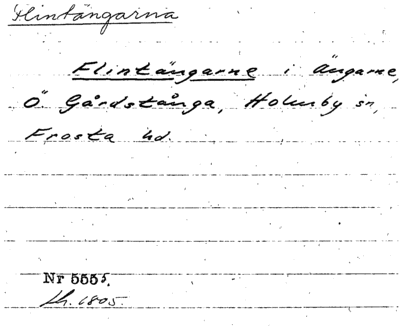 Flintängarna
Flintängarne i Ängarne,
Ö. Gårdstånga, Holmby sn,
Frosta hd.
Nr 5555.
Lh. 1805.